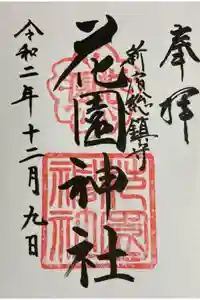 奉拝
新宿総鎮守
花園神社
令和二年十二月九日